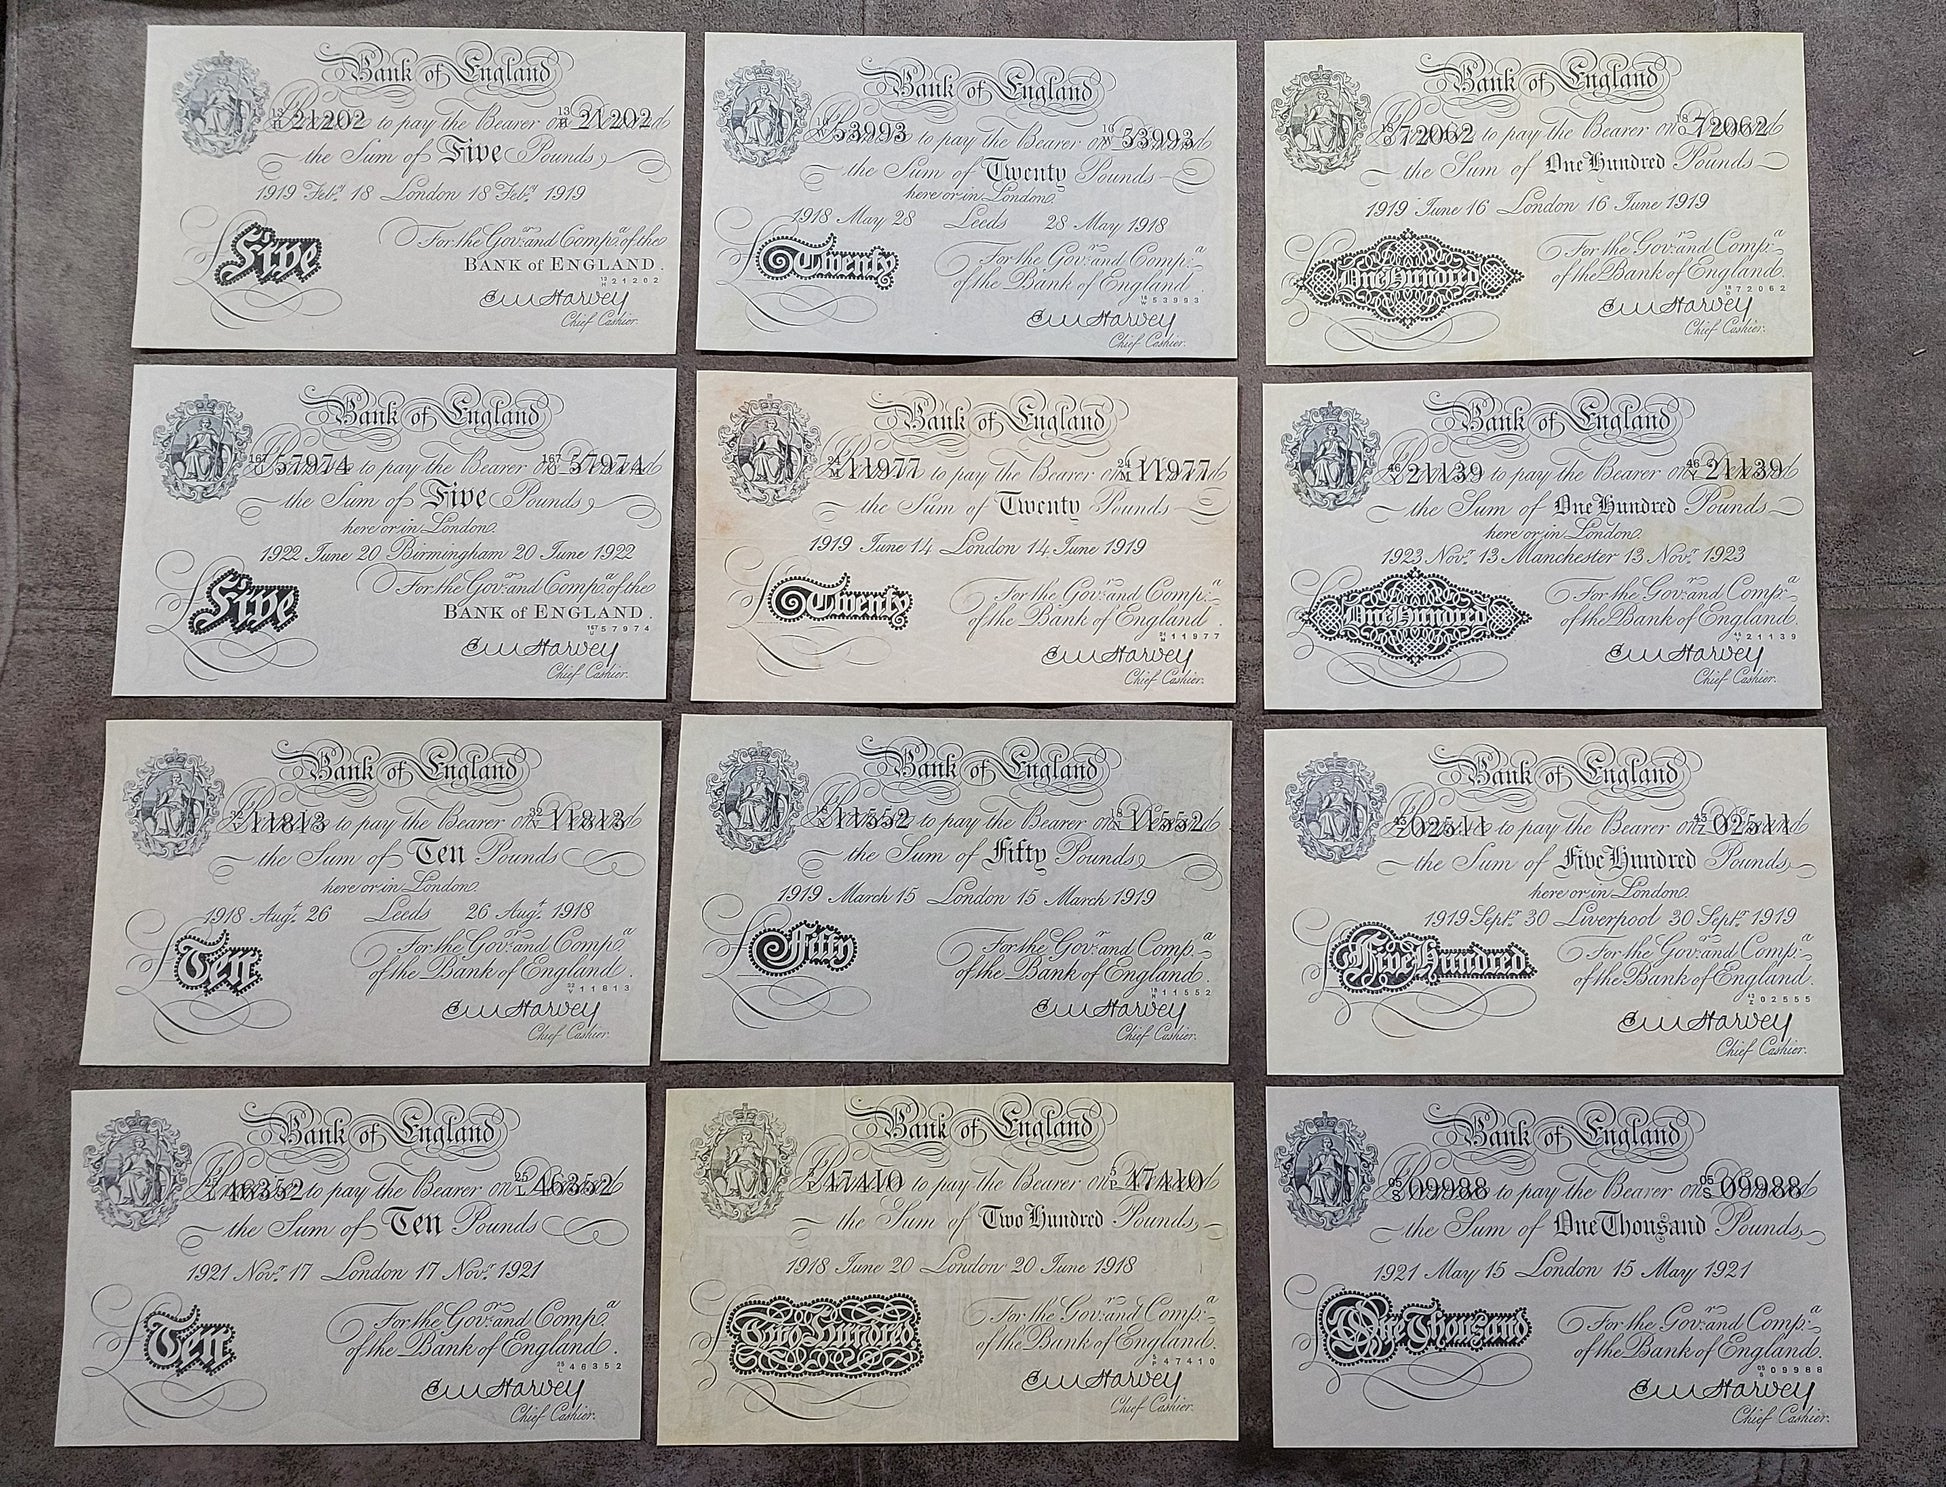 Bank of England
13 H 21202 to pay the Bearer on 13 H 21202
the Sum of Five Pounds
1919 Feby. 18 London 18 Feby. 1919
Five
For the Govr. and Compa. of the
BANK of ENGLAND.
13 H 21202
E M Harvey
Chief Cashier.
Bank of England
53993 to pay the Bearer on 53993
the Sum of Twenty Pounds
here or in London.
1918 May 28 Leeds 28 May 1918
Twenty
For the Govr. and Compa.
of the Bank of England
53993
E M Harvey
Chief Cashier.
Bank of England
18 72062 to pay the Bearer on 18 72062
the Sum of One Hundred Pounds
1919 June 16 London 16 June 1919
One Hundred
For the Govr. and Compa.
of the Bank of England.
18 72062
E M Harvey
Chief Cashier.
Bank of England
167 U 57974 to pay the Bearer on 167 U 57974
the Sum of Five Pounds
here or in London.
1922 June 20 Birmingham 20 June 1922
Five
For the Govr. and Compa. of the
BANK of ENGLAND.
167 U 57974
E M Harvey
Chief Cashier.
Bank of England
24 M 11977 to pay the Bearer on 24 M 11977
the Sum of Twenty Pounds
1919 June 14 London 14 June 1919
Twenty
For the Govr. and Compa.
of the Bank of England.
11977
E M Harvey
Chief Cashier.
Bank of England
46 Y 21139 to pay the Bearer on 46 Y 21139
the Sum of One Hundred Pounds
here or in London.
1923 Novr. 13 Manchester 13 Novr. 1923
One Hundred
For the Govr. and Compa.
of the Bank of England.
21139
E M Harvey
Chief Cashier.
Bank of England
32 V 11813 to pay the Bearer on 32 V 11813
the Sum of Ten Pounds
here or in London.
1918 Augt. 26 Leeds 26 Augt. 1918
Ten
For the Govr. and Compa.
of the Bank of England.
32 V 11813
E M Harvey
Chief Cashier.
Bank of England
18 N 11552 to pay the Bearer on 18 N 11552
the Sum of Fifty Pounds
1919 March 15 London 15 March 1919
Fifty
For the Govr. and Compa.
of the Bank of England.
18 N 11552
E M Harvey
Chief Cashier.
Bank of England
43 Z 02511 to pay the Bearer on 43 Z 02511
the Sum of Five Hundred Pounds
here or in London.
1919 Septr. 30 Liverpool 30 Septr. 1919
Five Hundred
For the Govr. and Compa.
of the Bank of England.
43 Z 02555
E M Harvey
Chief Cashier.
Bank of England
25 L 46352 to pay the Bearer on 25 L 46352
the Sum of Ten Pounds
1921 Novr. 17 London 17 Novr. 1921
Ten
For the Govr. and Compa.
of the Bank of England.
25 L 46352
E M Harvey
Chief Cashier.
Bank of England
5 P 47410 to pay the Bearer on 5 P 47410
the Sum of Two Hundred Pounds
1918 June 20 London 20 June 1918
Two Hundred
For the Govr. and Compa.
of the Bank of England.
5 P 47410
E M Harvey
Chief Cashier.
Bank of England
05 S 09988 to pay the Bearer on 05 S 09988
the Sum of One Thousand Pounds
1921 May 15 London 15 May 1921
One Thousand
For the Govr. and Compa.
of the Bank of England.
05 S 09988
E M Harvey
Chief Cashier.